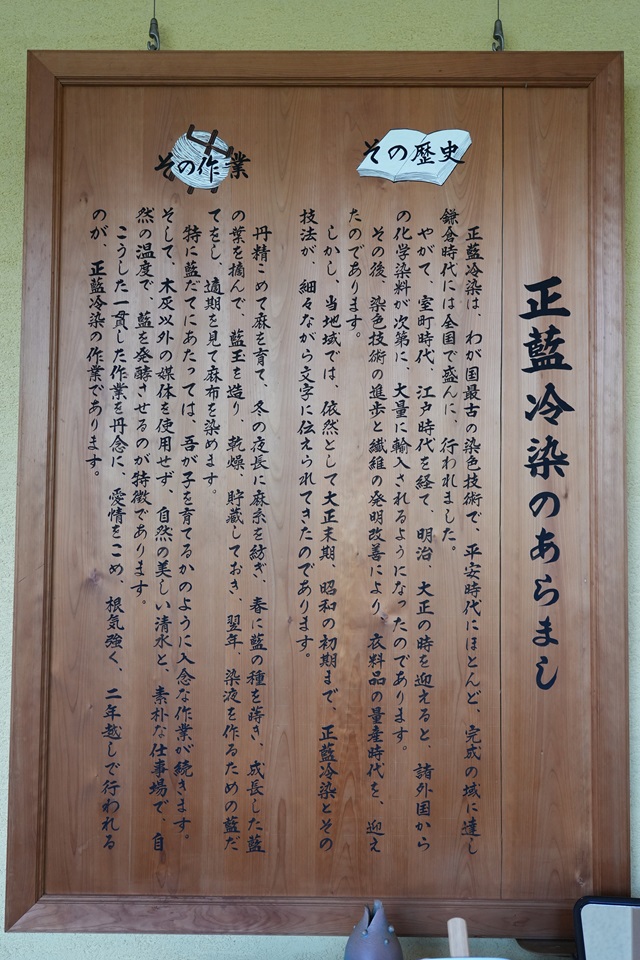 正藍冷染のあらまし
その歴史
正藍冷染は、わが国最古の染色技術で、平安時代にほとんど、完成の域に達し
鎌倉時代には全国で盛んに、行われました。
やがて、室町時代、江戸時代を経て、明治、大正の時を迎えると、諸外国から
の化学染料が次第に、大量に輸入されるようになったのであります。
その後、染色技術の進歩と繊維の発明改善により、衣料品の量産時代を、迎え
たのであります。
しかし、当地域では、依然として大正末期、昭和の初期まで、正藍冷染とその
技法が、細々ながら文字に伝えられてきたのであります。
その作業
丹精こめて麻を育て、冬の夜長に麻糸を紡ぎ、春に藍の種を蒔き、成長した藍
の葉を摘んで、藍玉を造り、乾燥、貯蔵しておき、翌年、染液を作るための藍だ
てをし、適期を見て麻布を染めます。
特に藍だてにあたっては、吾が子を育てるかのように入念な作業が続きます。
そして、木灰以外の媒体を使用せず、自然の美しい清水と、素朴な仕事場で、自
然の温度で、藍を発酵させるのが特徴であります。
こうした一貫した作業を丹念に、愛情をこめ、根気強く、二年越しで行われる
のが、正藍冷染の作業であります。